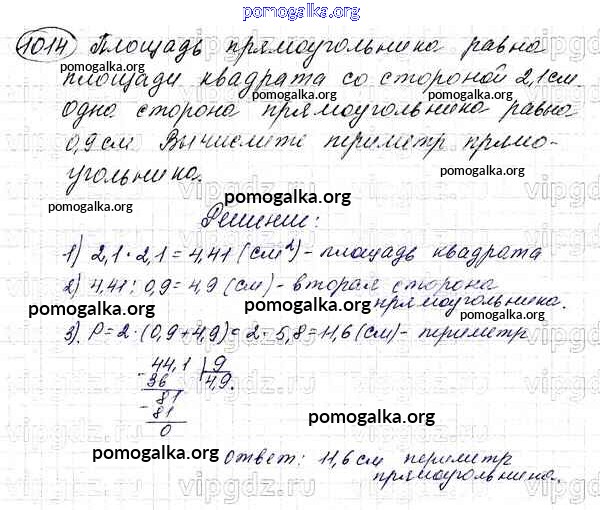 pomogalka.org
1014 Площадь прямоугольника равна
pomogalka.org pomogalka.org
площади квадрата со стороной 2,1 см.
pomogalka.org
одна сторона прямоугольника равна
pomogalka.org
0,9 см. Вычислите периметр прямо-
pomogalka.org
угольника.
pomogalka.org
pomogalka.org
Решение:
1) 2,1 · 2,1 = 4,41 (см²) - площадь квадрата
2) 4,41 : 0,9 = 4,9 (см) - вторая сторона
прямоугольника.
pomogalka.org pomogalka.org
3) P = 2 · (0,9 + 4,9) = 2 · 5,8 = 11,6 (см) - периметр
44,1 9
36 4,9.
81
81
0
pomogalka.org
pomogalka.org
ответ: 11,6 см периметр
прямоугольника.
vipgdz.ru